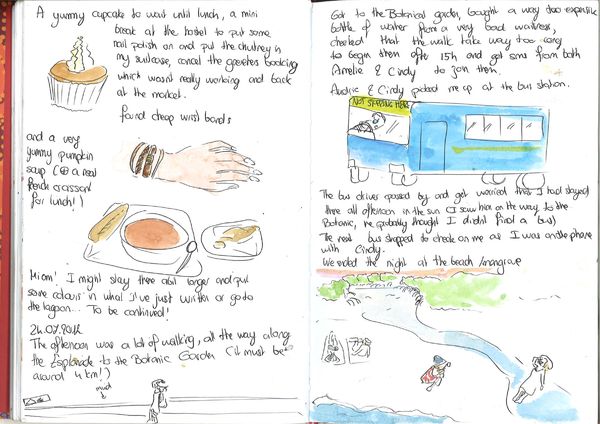 A yummy cupcake to wait until lunch, a mini
break at the hostel to put some
nail polish on and put the chutney in
my suitcase, cancel the greeters booking
which wasn't really working and back
at the market.
found cheap wrist bands
and a very
yummy pumpkin
soup (⊕ a real
french croissant
for lunch!)
Miom! I might stay there a bit longer and put
some colours in what I've just written or go to
the lagoon... To be continued!
The afternoon was a lot of walking, all the way along
the Esplanade to the Botanic Garden (it must be
around 4 km!)
mud
Got to the Botanical garden, bought a way too expensive
bottle of water from a very bad waitress,
checked that the walk take way too long
to begin them after 15h and got sms from both
Amelie & Cindy to join them.
& Cindy picked me up at the bus station.
NOT STOPPING HERE
The bus driver passed by and get worried that I had stayed
there all afternoon in the sun (I saw him on the way to the
Botanic, he probably thought I didn't find a bus)
The next bus stopped to check on me as I was on the phone
with Cindy.
We ended the night at the beach / mangrove